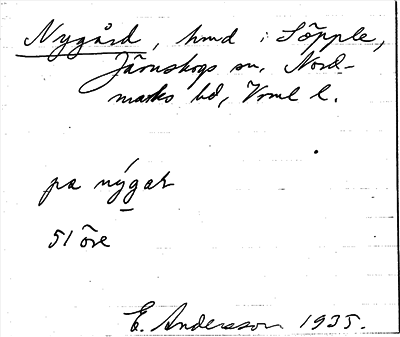 Nygård, hmd i Söpple,
Järnskogs sn, Nord-
marks hd, Vrml l.
pa nýgaṭ
51 öre
E. Andersson 1935.